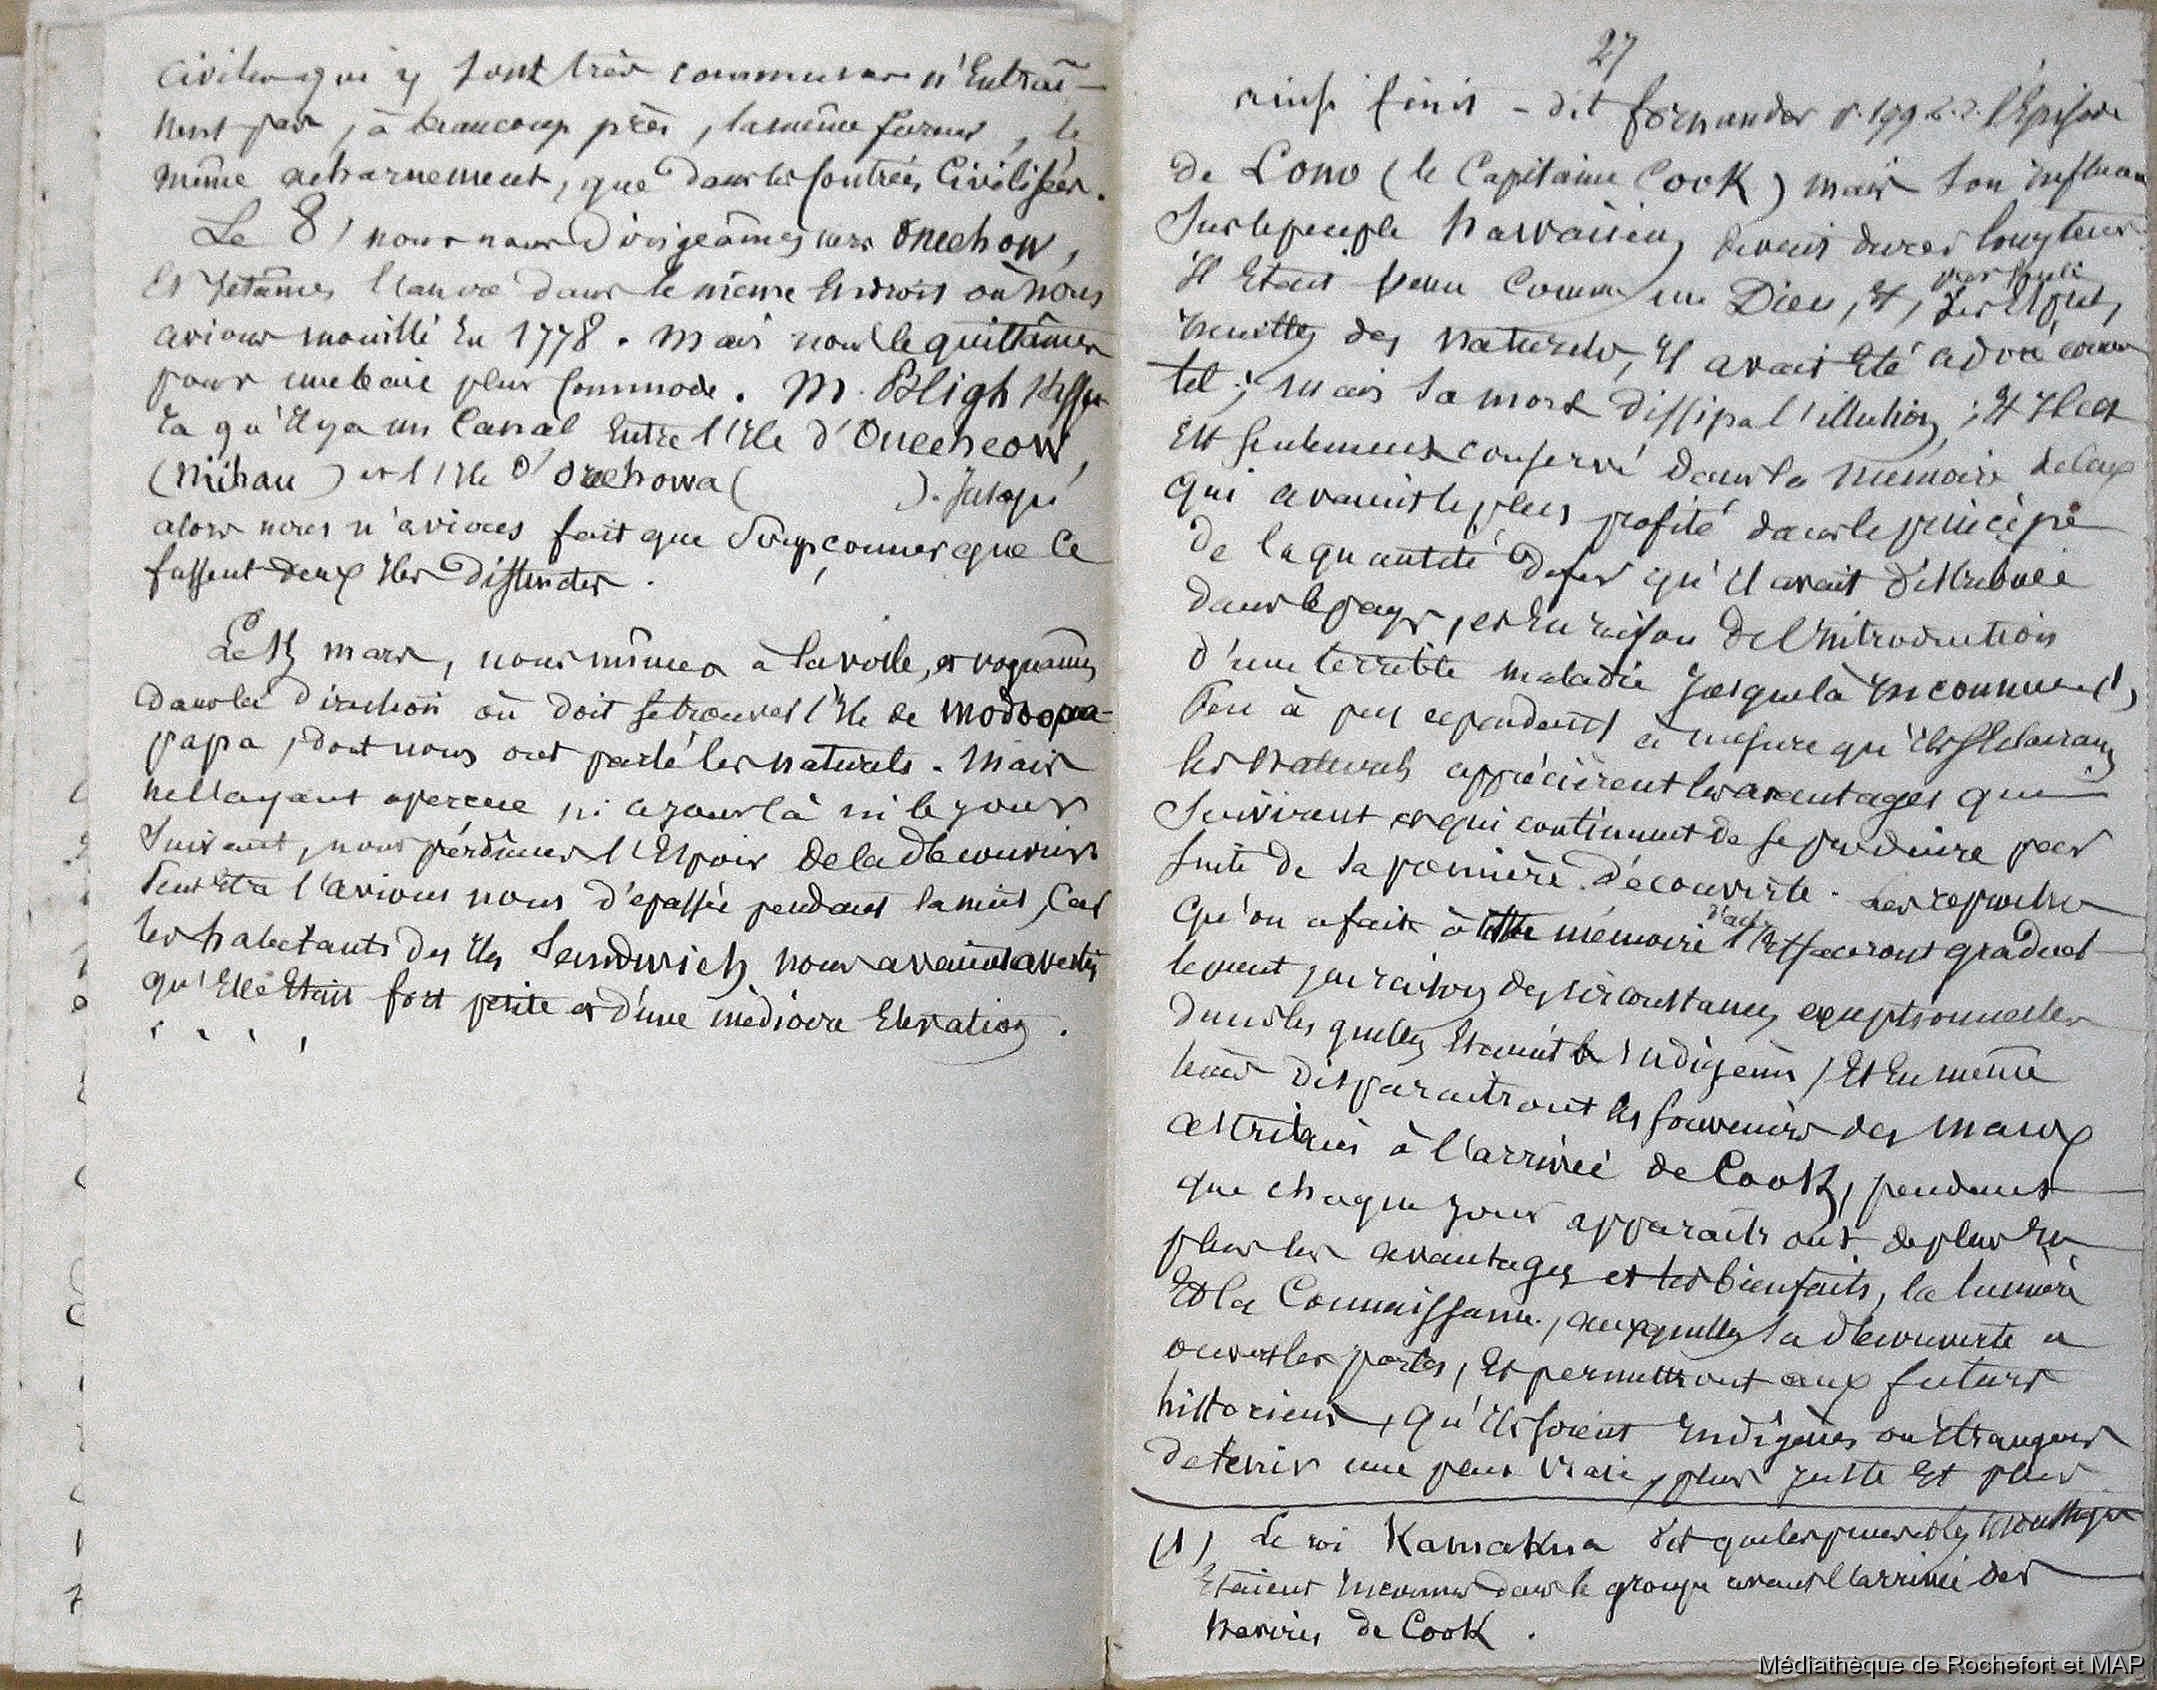 civiles qui y sont très communes n'entraî-
nent pas, à beaucoup près, la même fureur, le
même acharnement, que dans les contrées civilisées.
Le 8, nous nous dirigeâmes vers Oneehow,
et jetâmes l'ancre dans le même endroit où nous
avions mouillé en 1778. Mais nous le quittâmes
pour une baie plus commode. M. Bligh s'assu-
ra qu'il y a un canal entre l'île d'Oneeheow,
(Niihau) et l'île d'Oreehowa ( ). Jusqu'
alors nous n'avions fait que soupçonner que ce
fussent deux îles distinctes.
Le 15 mars, nous mîmes à la voile, et voguâmes
dans la direction où doit se trouver l'île de Modoopa-
papa, dont nous ont parlé les naturels. Mais
ne l'ayant aperçue ni ce jour là ni le jour
suivant, nous perdîmes l'espoir de la découvrir.
Peut être l'avions nous dépassée pendant la nuit, car
les habitants des îles Sandwich nous avaient avertis
qu'elle était fort petite et d'une médiocre élévation.
. . . .
27
Ainsi finit - dit Fornander p. 199 t. 2. l'épisode
de Lono (le Capitaine Cook) mais son influence
sur le peuple hawaiien devait durer longtemps.
Il était venu comme un Dieu, et, par les
naturels, il avait été adoré comme
tel; mais sa mort dissipa l'illusion; et il
est seulement conservé dans la mémoire de ceux
qui avaient le plus profité dans le principe
de la quantité de fer qu'il avait distribuée
dans le pays, et en raison de l'introduction
d'une terrible maladie jusque là inconnue (1),
Peu à peu cependant à mesure qu'ils s'éclairaient
les naturels apprécièrent les avantages qui
suivirent et qui continuent de se produire par
suite de sa première découverte. Les reproches
qu'on a fait à cette mémoire s'effaceront graduel-
lement, en raison des circonstances exceptionnelles
dans lesquelles étaient les indigènes, et en même
temps disparaîtront les souvenirs des maux
attribués à l'arrivée de Cook, pendant
que chaque jour apparaîtront de plus en
plus les avantages et les bienfaits, la lumière
et la connaissance, auxquelles sa découverte a
ouvert les portes, et permettront aux futurs
historiens, qu'ils soient indigènes ou étrangers
de tenir une plus vraie, plus juste et plus
(1) Le roi Kamakua dit que les puces et les moustiques
étaient inconnus dans le groupe avant l'arrivée des
navires de Cook.
Médiathèque de Rochefort et MAP